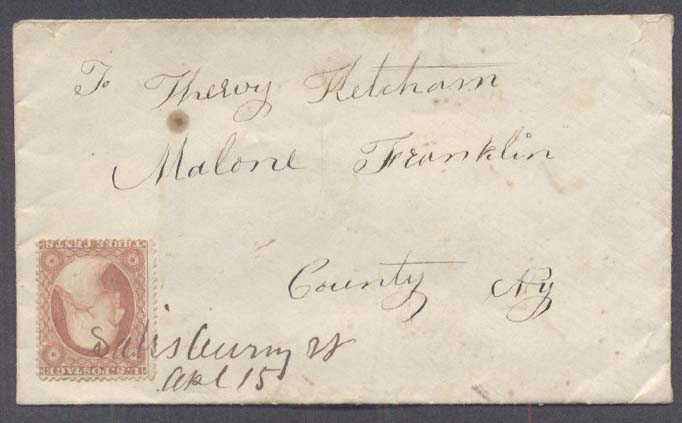 To Thervy Ketcham
Malone Franklin
County Ny
THREE CENTS
Salisbury Vt
Apl 15
U.S. POSTAGE